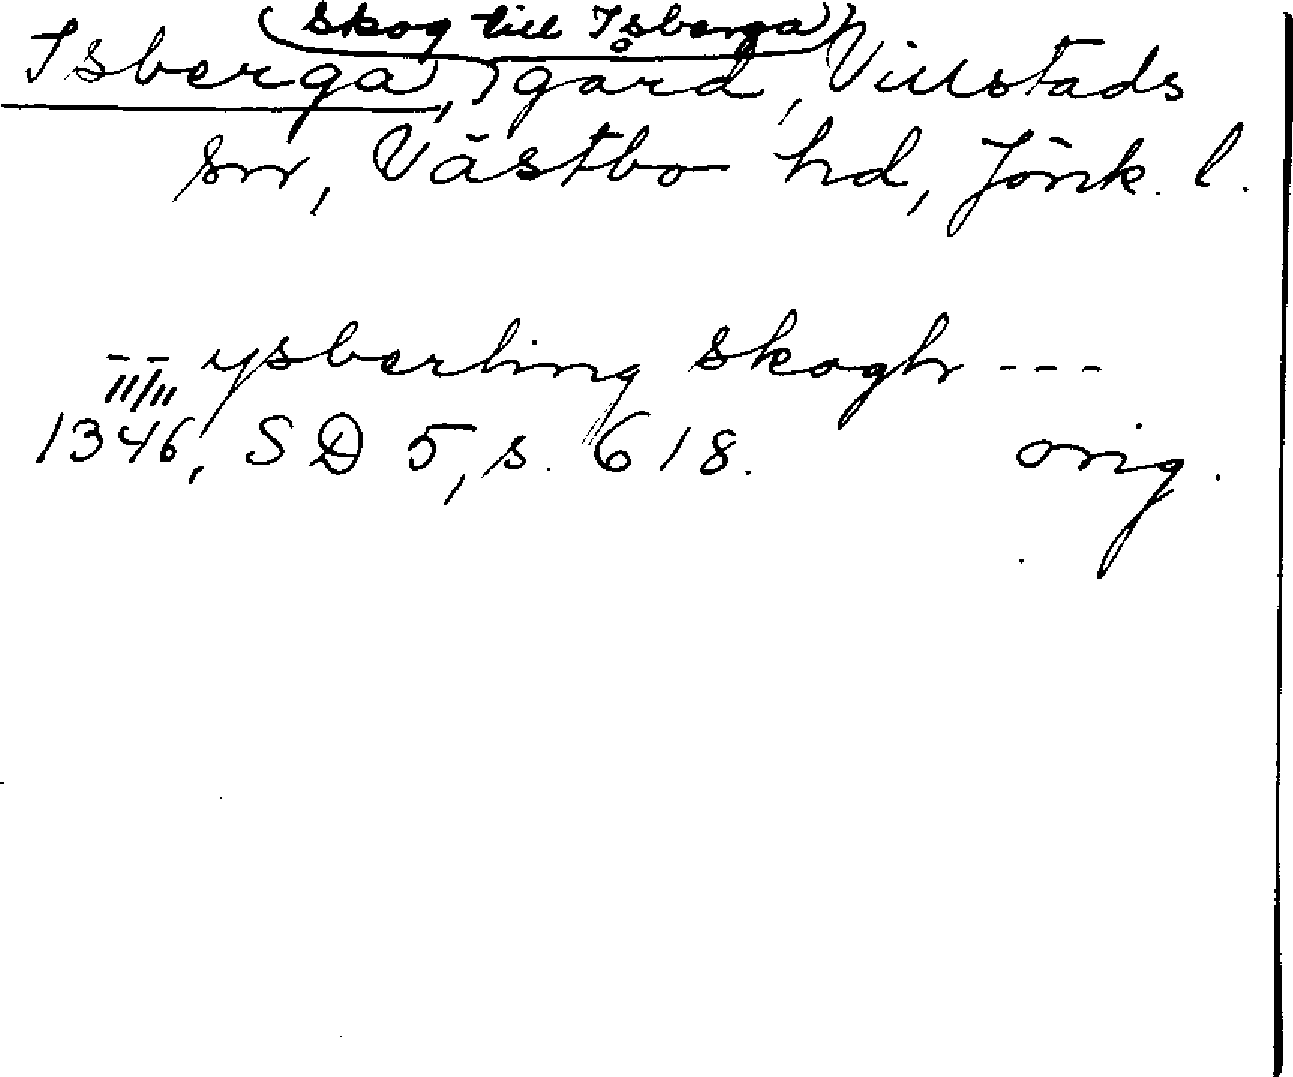 (skog till Isberga)
Isberga, gård, Villstads
sn, Västbo hd, Jönk. l.
--- ysberhing skogh ---
1346, SD 5, s. 618. orig.